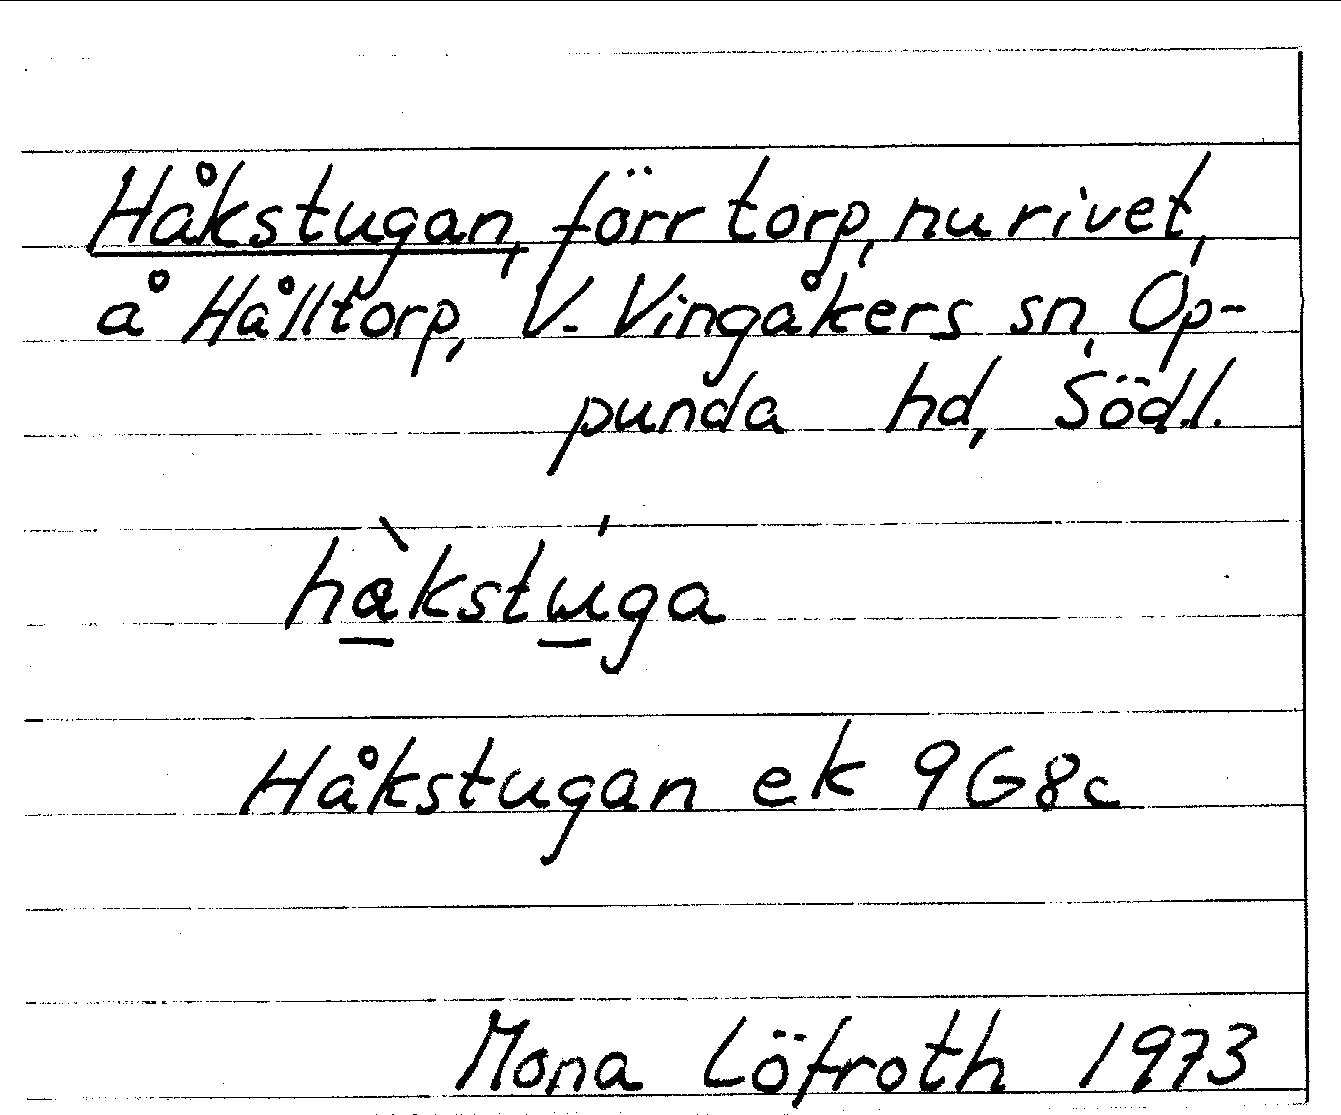 Håkstugan, förr torp, nu rivet,
å Hålltorp, V. Vingåkers sn, Op-
punda hd, Södl.
hàkstúga
Håkstugan ek 9G8c
Mona Löfroth 1973